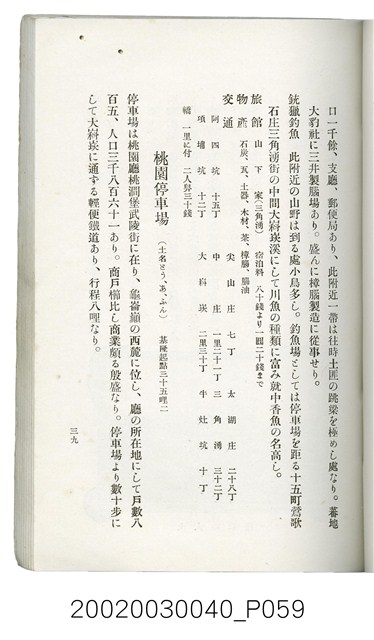 口一千餘、支廳、郵便局あり、此附近一帶は往時土匪の跳梁を極めし處なり。蕃地
大豹社に三井製腦場あり。盛んに樟腦製造に從事せり。
銃獵釣魚 此附近の山野は到る處小鳥多し。釣魚場としては停車場を距る十五町鶯歌
石庄三角湧街の中間大嵙崁溪にして川魚の種類に富み就中香魚の名高し。
旅館 山下家(三角湧) 宿泊料 八十錢より一圓二十錢まで
物產 石炭、瓦、土器、木材、茶、樟腦、腦油
交通 尖山庄 七丁 太湖庄 二十八丁
阿四坑 十五丁 中庄 一里二十一丁 三角湧 三十二丁
項埔坑 十二丁 大嵙崁 二里三十丁 牛灶坑 十丁
轎 一里に付 二人舁三十錢
桃園停車場 (土名とう、あ、ふん) 基隆起點三十五哩二
停車場は桃園廳桃澗堡武陵街に在り、龜崙嶺の西麓に位し、廳の所在地にして戶數八
百五、人口三千八百六十一あり。商戶櫛比し商業頗る殷盛なり。停車場より數十步に
して大嵙崁に通する輕便鐵道あり、行程八哩なり。
三九
20020030040_P059